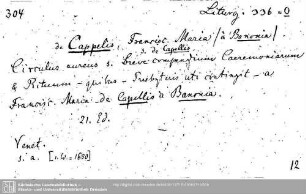 304 Liturg. 336 = 0
de Cappelis, Francisc. Maria /à Bononia/
s. de Capellis.
Circulus aureus s. breve compendium Caeremoniarum
& Rituum - quibus - Presbyteris uti contingit - a
Francisc. Maria de Capellis à Bononia.
21. Ed.
Venet.
s. a. 12
Sächsische Landesbibliothek -
Staats- und Universitätsbibliothek Dresden